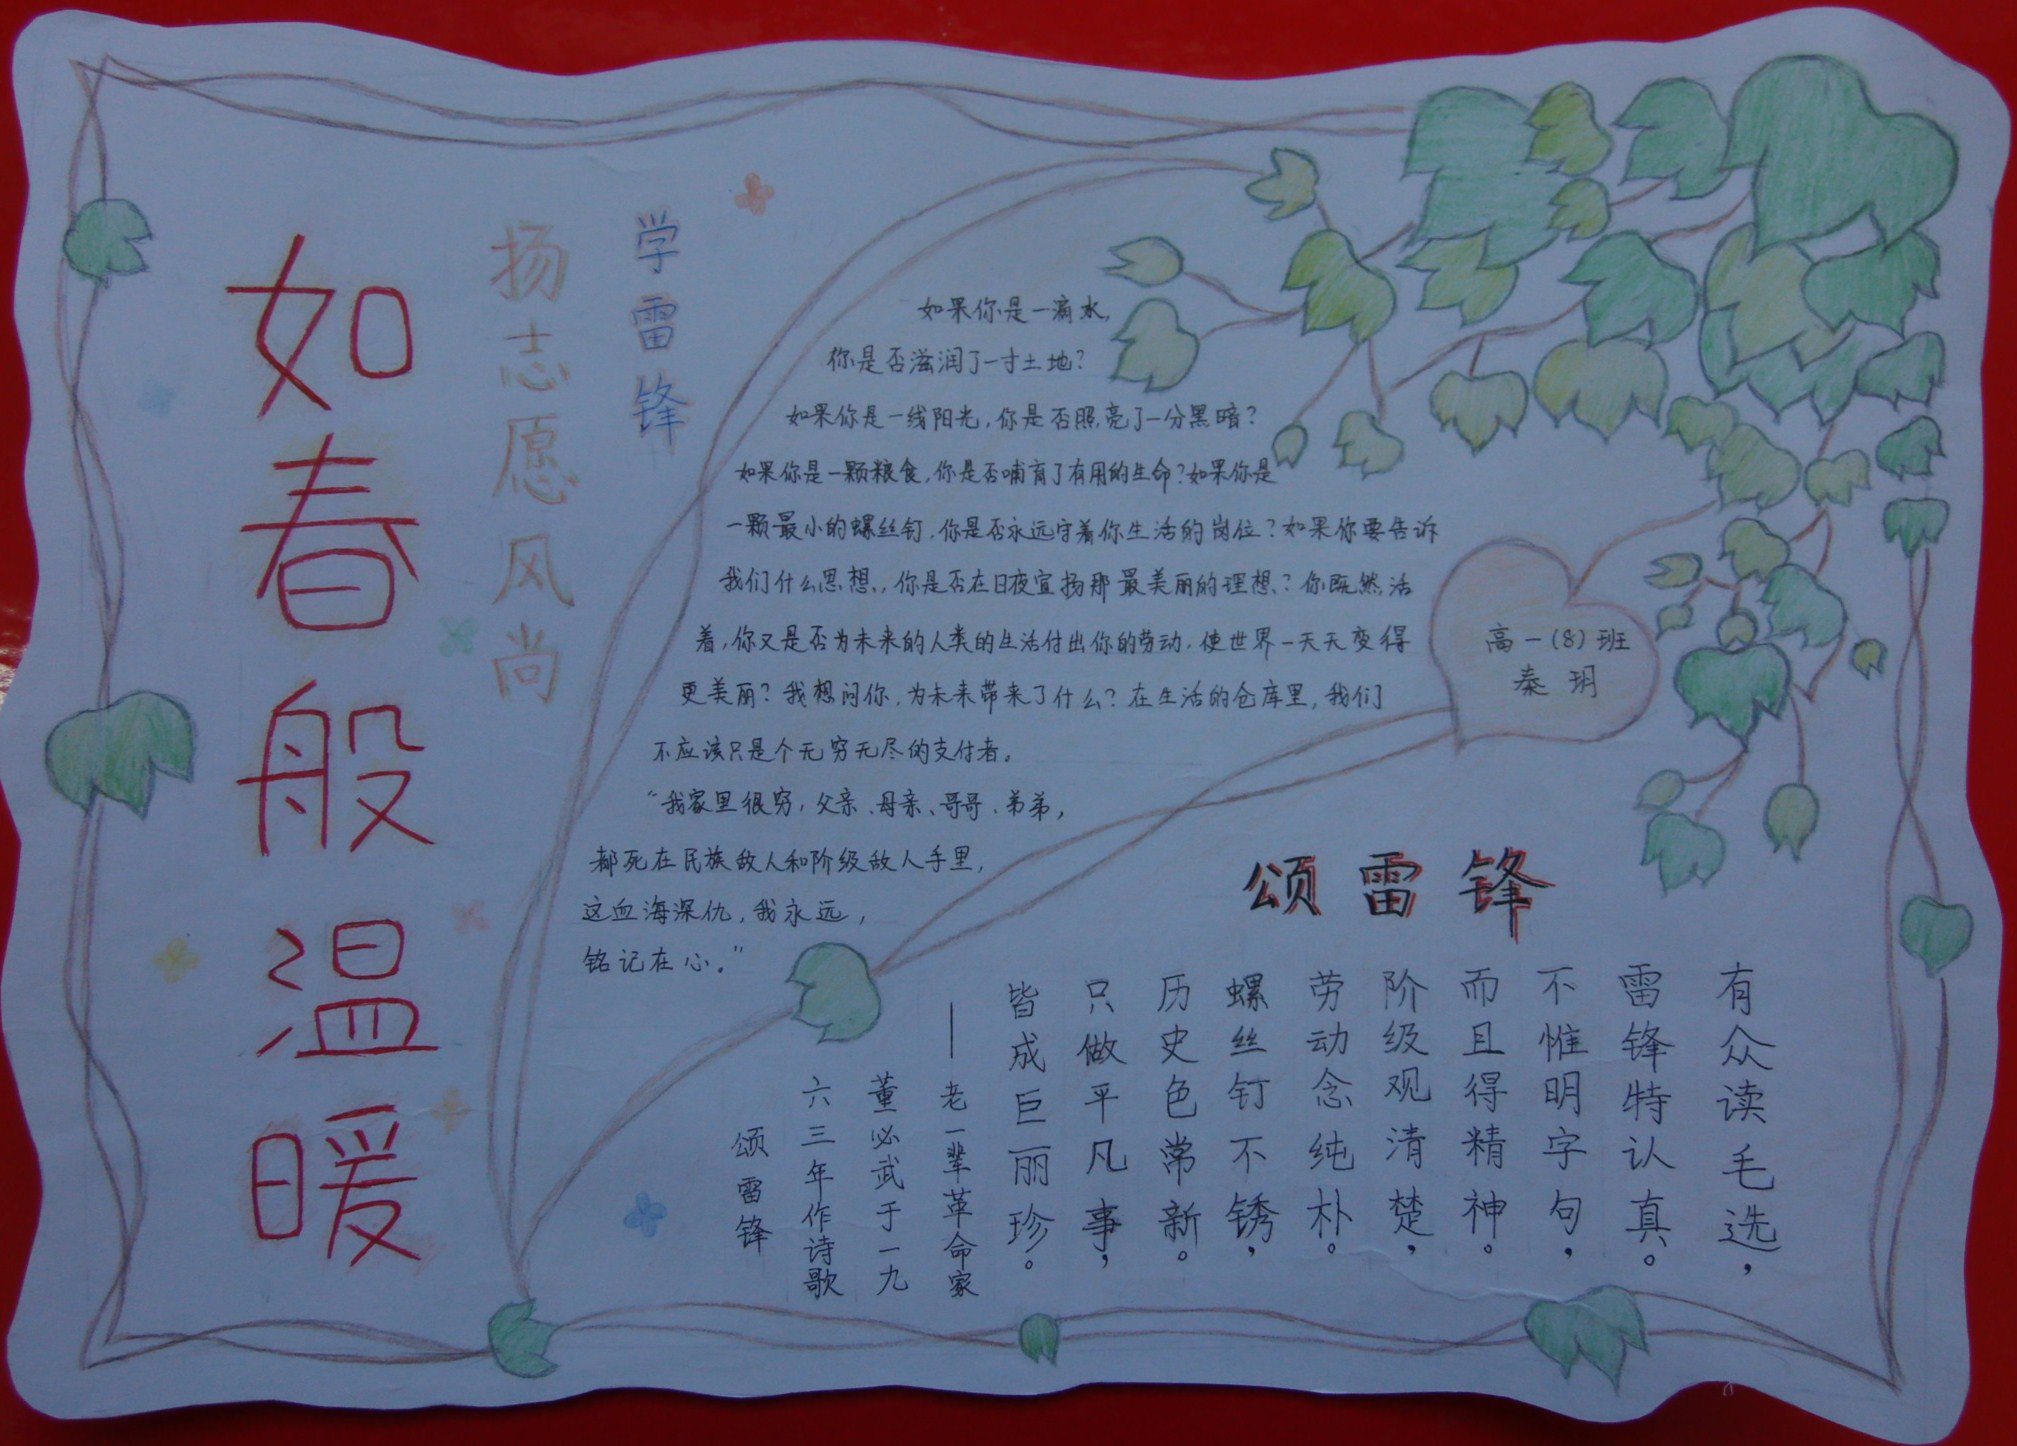 如春般温暖
扬志愿风尚
学雷锋
如果你是一滴水,
你是否滋润了一寸土地?
如果你是一线阳光,你是否照亮了一分黑暗?
如果你是一颗粮食,你是否哺育了有用的生命?如果你是
一颗最小的螺丝钉,你是否永远守着你生活的岗位?如果你要告诉
我们什么思想,你是否在日夜宣扬那最美丽的理想?你既然活
着,你又是否为未来的人类的生活付出你的劳动,使世界一天天变得
更美丽?我想问你,为未来带来了什么?在生活的仓库里,我们
不应该只是个无穷无尽的支付者。
“我家里很穷,父亲、母亲、哥哥、弟弟,
都死在民族敌人和阶级敌人手里,
这血海深仇,我永远,
铭记在心。”
高一(8)班
秦玥
颂雷锋
有众读毛选,
雷锋特认真。
不惟明字句,
而且得精神。
阶级观清楚,
劳动念纯朴。
螺丝钉不锈,
历史色常新。
只做平凡事,
皆成巨丽珍。
——老一辈革命家
董必武于一九
六三年作诗歌
颂雷锋